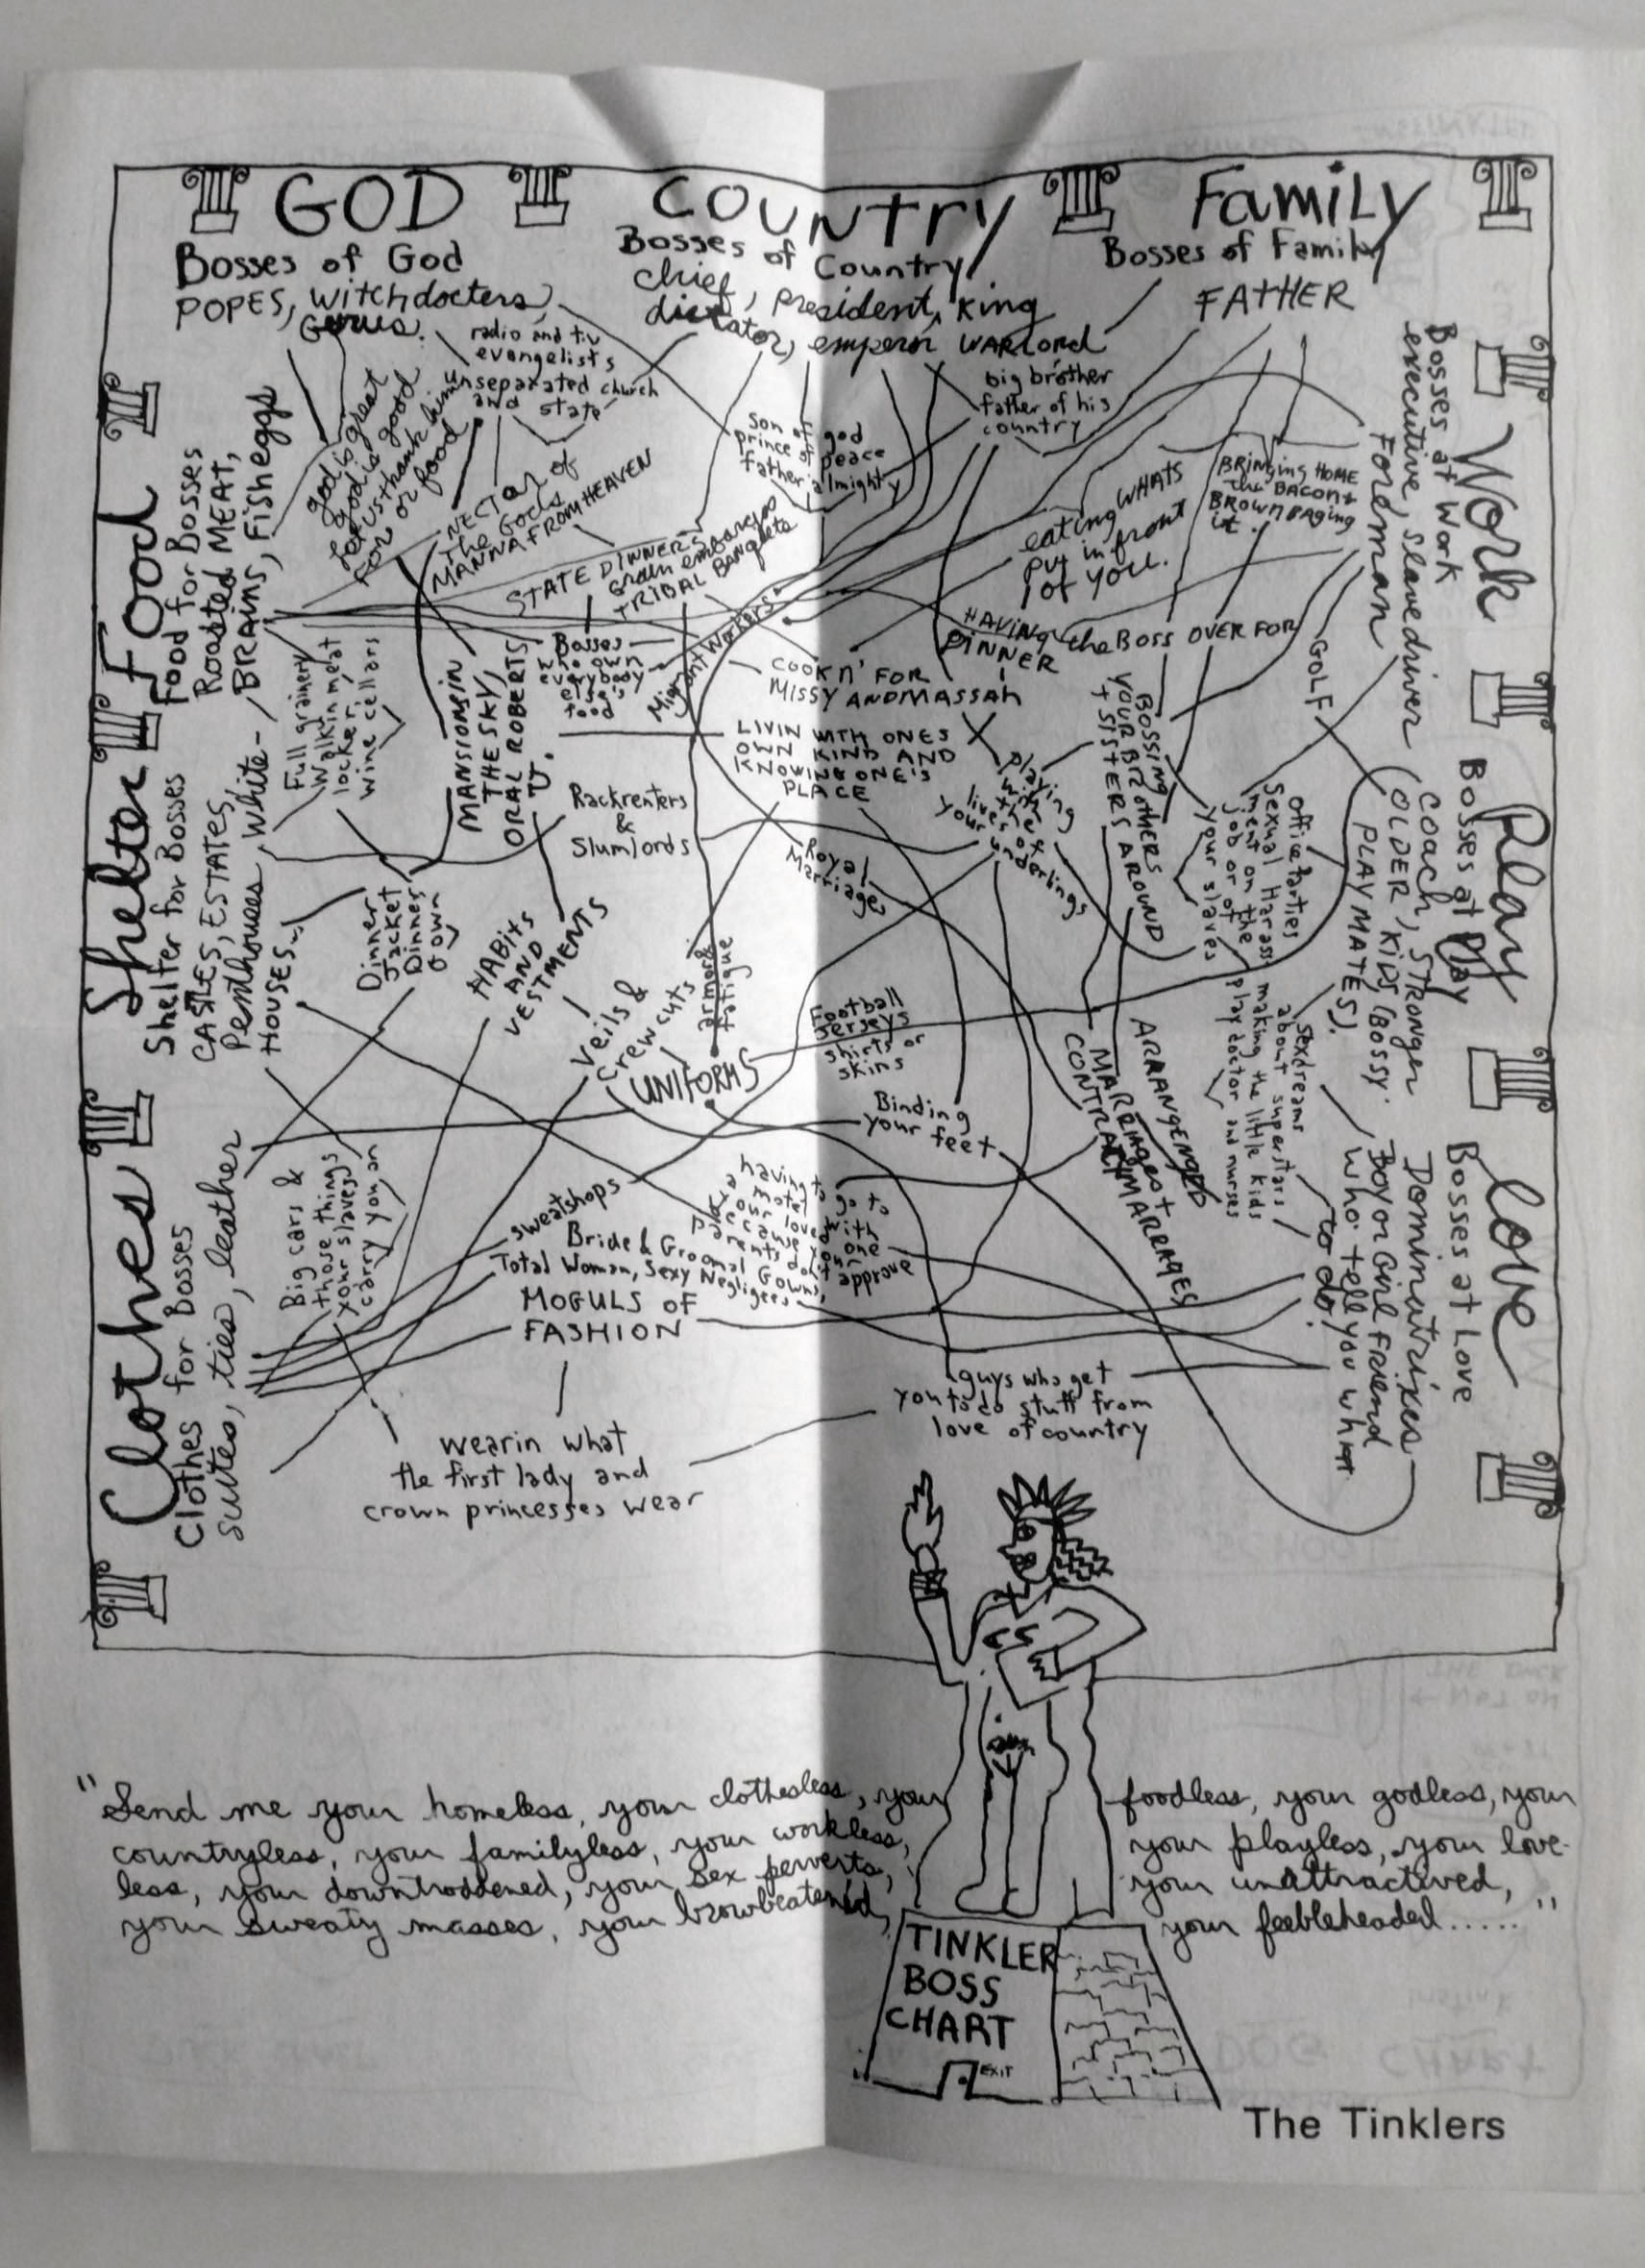 GOD
Bosses of God
POPES, witchdocters,
Gurus.
COUNTRY
Bosses of Country
chief, president, king
dictator, emperor WARLORD
Family
Bosses of Family
FATHER
Work
Bosses at Work
executive, slavedriver
Foreman
Play
Bosses at Play
COACH, STRONGER
(OLDER, KIDS (BOSSY
PLAYMATES).
Love
Bosses at Love
Dominatrixes
Boy or Girl Friend
who tell you what
to do!
Food
Food for Bosses
Roasted MEAT,
BRAINS, Fisheggs
Shelter
Shelter for Bosses
CASTLES, ESTATES,
Penthouses, white-
HOUSES
Clothes
Clothes for Bosses
suites, ties, leather
radio and tiv
evangelists
unseparated church
and state
god is great
god is good
let us thank him
for or food
NECTAR of
the Gods
MANNA FROM HEAVEN
STATE DINNERS
Grain embargos
TRIBAL BANQUETS
Son of god
prince of peace
father almighty
big brother
father of his
country
eating WHATS
put in front
of you.
BRINGING HOME
the BACON +
BROWNBAGING
it.
HAVING the BOSS OVER FOR
DINNER
GOLF
Migrant Workers
Bosses
who own
everybody
else's
food
COOKN' FOR
MISSY AND MASSAH
Full grainery
Walkin meat
locker,
wine cellars
MANSIONS IN
THE SKY,
ORAL ROBERTS
U.
LIVIN WITH ONES
OWN KIND AND
KNOWING ONE'S
PLACE
Rackrenters
&
Slumlords
Playing
with
the
lives of
your underlings
BOSSING
YOUR BROTHERS
+ SISTERS AROUND
office parties
Sexual Harass
ment on the
job or of
your slaves
Royal
Marriages
Dinner
Jacket
Dinner
Gown
HABITS
AND
VESTMENTS
Veils &
crewcuts
armor &
fatigue
UNIFORMS
Football
Jerseys
shirts or
skins
Binding
your feet
ARRANGED
MARRIAGES +
CONTRACT MARRIAGES
sexdreams
about superstars
making the little kids
play doctor and nurses
Big cars &
those things
your slaves
carry you on
sweatshops
having to go to
a motel with
your loved one
because your
parents don't approve
Bride & Groomal Gowns,
Total Woman, Sexy Negligees
MOGULS OF
FASHION
wearin what
the first lady and
crown princesses wear
guys who get
you to do stuff from
love of country
"Send me your homeless, your clothesless, your foodless, your godless, your
countryless, your familyless, your workless, your playless, your love-
less, your downtroddened, your sex perverts, your unattractived,
your sweaty masses, your browbeatened, your feebleheaded......"
TINKLER
BOSS
CHART
EXIT
The Tinklers